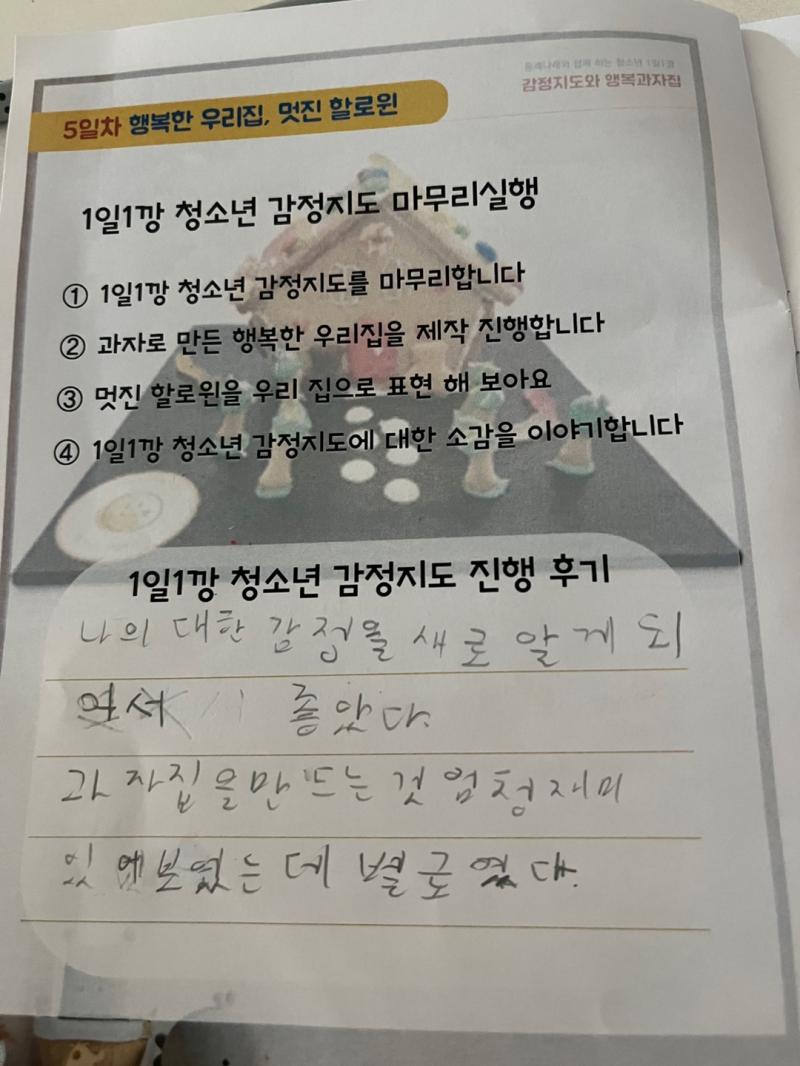 감정지도와 행복과자집
5일차 행복한 우리집, 멋진 할로윈
1일1깡 청소년 감정지도 마무리실행
① 1일1깡 청소년 감정지도를 마무리합니다
② 과자로 만든 행복한 우리집을 제작 진행합니다
③ 멋진 할로윈을 우리 집으로 표현 해 보아요
④ 1일1깡 청소년 감정지도에 대한 소감을 이야기합니다
1일1깡 청소년 감정지도 진행 후기
나의 대한 감정을 새로 알게 되
서 좋았다.
과자집을만드는 것 엄청재미
있 보였는데 별로였다.